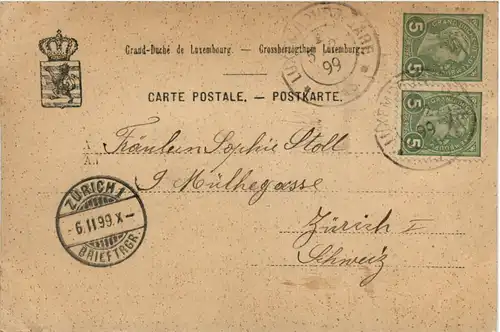 Grand-Duché de Luxembourg. — Grossherzogthum Luxemburg.
CARTE POSTALE. — POSTKARTE.
Fräulein Sophie Stoll
9 Mülhegasse
Zürich I
Schweiz
ZÜRICH 1
-6.II.99.X-
BRIEFTRGR.
99
5
5